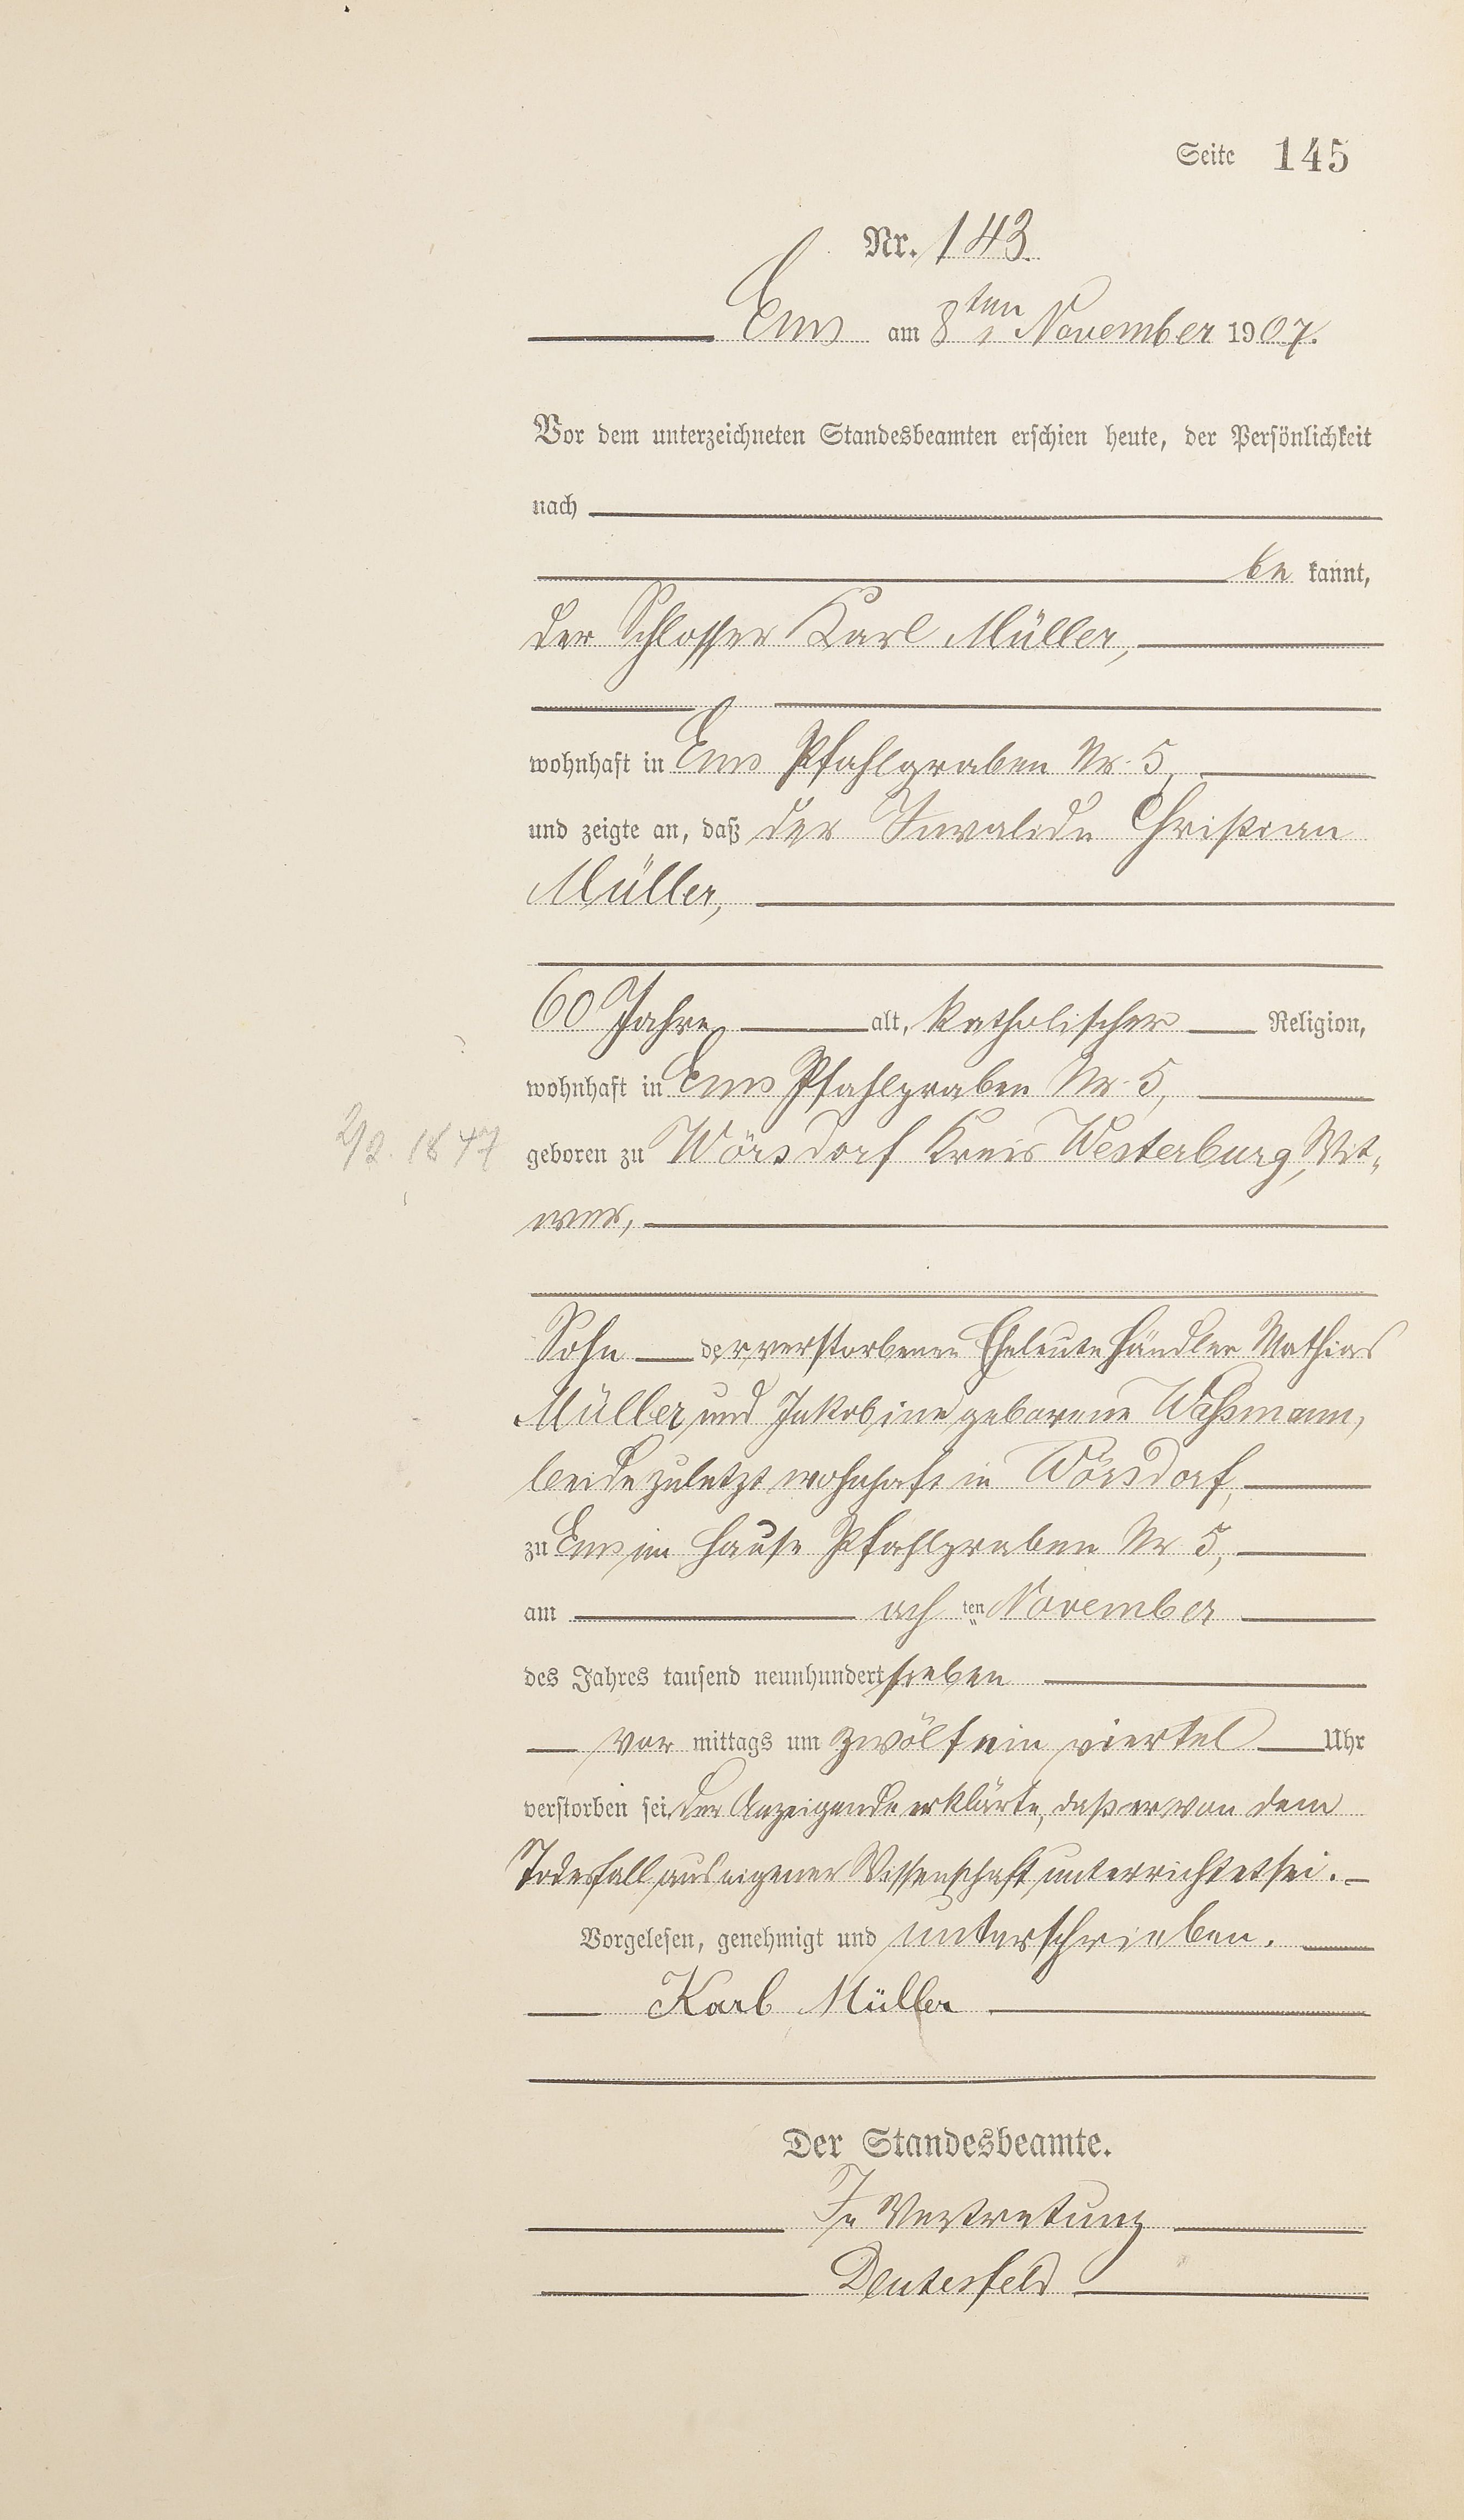 Seite 145
Nr. 143
Ems am 8ten November 1907.
Vor dem unterzeichneten Standesbeamten erschien heute, der Persönlichkeit
nach
be kannt,
der Schlosser Karl Müller,
wohnhaft in Ems Pfahlgraben Nr. 5,
und zeigte an, daß der Invalide Christian
Müller,
60 Jahre alt, katholischer Religion,
wohnhaft in Ems Pfahlgraben Nr. 5,
2/2. 1847
geboren zu Wörsdorf Kreis Westerburg, Wit„
wer,
Sohn der verstorbenen Eheleute Händler Mathias
Müller und Jakobine geborene Waßmann,
beide zuletzt wohnhaft in Wörsdorf,
zu Ems im Hause Pfahlgraben Nr 5,
am ach ten November
des Jahres tausend neunhundert sieben
vor mittags um zwölf ein viertel Uhr
verstorben sei. Der Anzeigende erklärte, daß er von dem
Todesfall aus eigener Wissenschaft unterrichtet sei.
Vorgelesen, genehmigt und unterschrieben.
Karl Müller
Der Standesbeamte.
In Vertretung
Deutesfeld